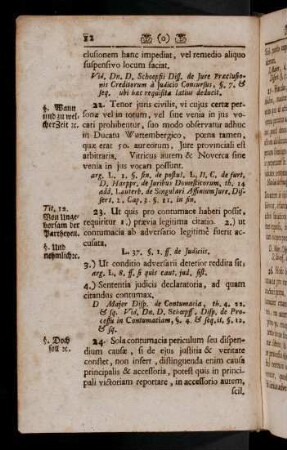 12 (0)
clusionem hanc impediat, vel remedio aliquo
suspensivo locum faciat.
Vid. Dn. D. Schoepff Diss. de Jure Præclusio-
nis Creditorum à Judicio Concursus, §. 7. &
seq. ubi hæc requisita latius deducit.
§. Wann
und zu wel-
cher Zeit ꝛc.
22. Tenor juris civilis, vi cujus certæ per-
sonæ vel in totum, vel sine venia in jus vo-
cari prohibentur, suo modo observatur adhuc
in Ducatu Würtembergico, pœna tamen,
quæ erat 50. aureorum, Jure provinciali est
arbitraria, Vitricus autem & Noverca sine
venia in jus vocari possunt.
arg. L. 1. §. fin. de postul. L. 11, C. de furt.
D. Harppr. de Juribus Domesticorum, th. 14
add. Lauterb. de Singulari Affinium Jure, Dis-
sert. 2. Cap. 3. §. 11, in fin.
Tit. 12.
Von Unge-
horsam der
Partheyen.
§. Und
nehmliche.
23. Ut quis pro contumace haberi possit,
requiritur 1.) prævia legitima citatio. 2.) ut
contumacia ab adversario legitimè fuerit ac-
cusata.
L. 37. §. 1. ff. de Judiciis.
3.) Ut conditio adversarii deterior reddita sit,
arg. L. 8. ff. si quis caut. jud. sist.
4.) Sententia judicis declaratoria, ad quam
citandus contumax.
D Maier Disp. de Contumacia, th. 4. 22.
& sq. Vid. Dn. D. Schœpff. Disp. de Pro-
cessu in Contumaciam, §. 4. & seq. it. §. 12,
& sq.
§. Doch
soll ꝛc.
24. Sola contumacia periculum seu dispen-
dium causæ, si de ejus justitia & veritate
constet, non infert, distinguenda enim causa
principalis & accessoria, potest quis in princi-
pali victoriam reportare, in accessorio autem,
scil.